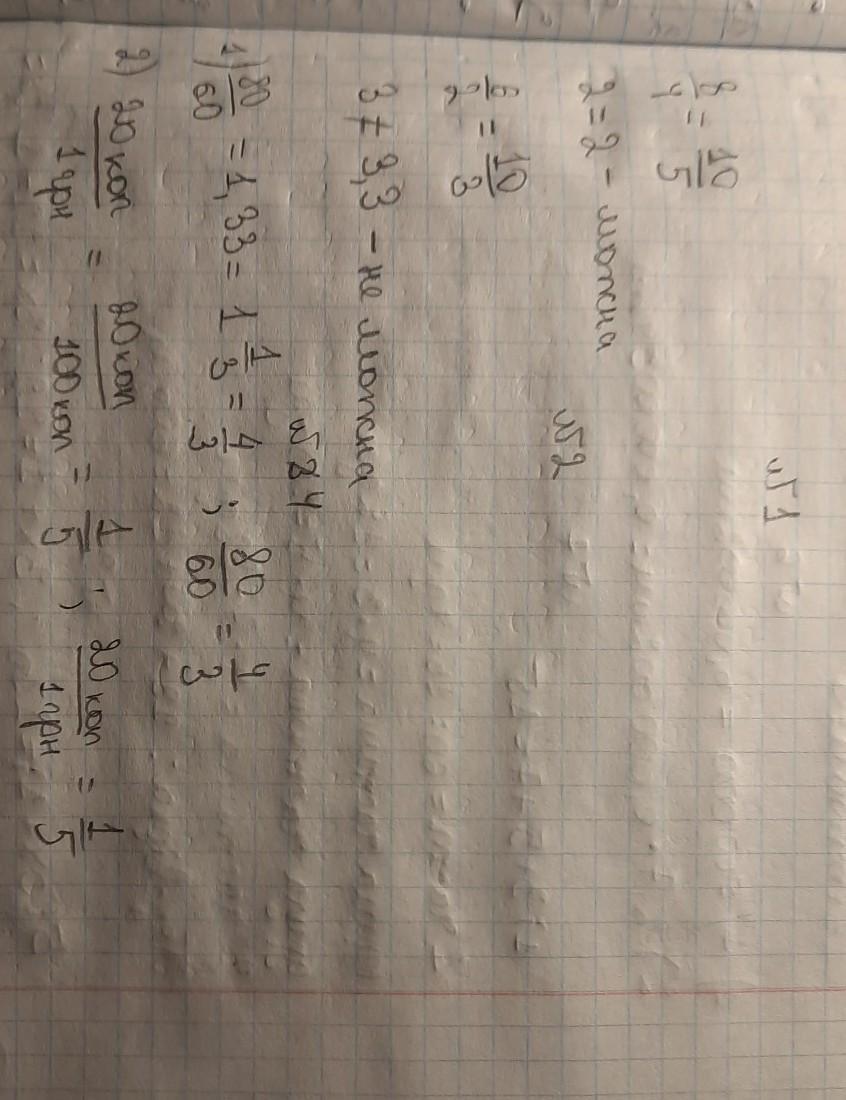 №1
8/4 = 10/5
2 = 2 - можна
№2
6/2 = 10/3
3 ≠ 3,3 - не можна
№ 34
1) 80/60 = 1,33 = 1 1/3 = 4/3 ; 80/60 = 4/3
2) 20 коп/1 грн = 20 коп/100 коп = 1/5 ; 20 коп/1 грн = 1/5